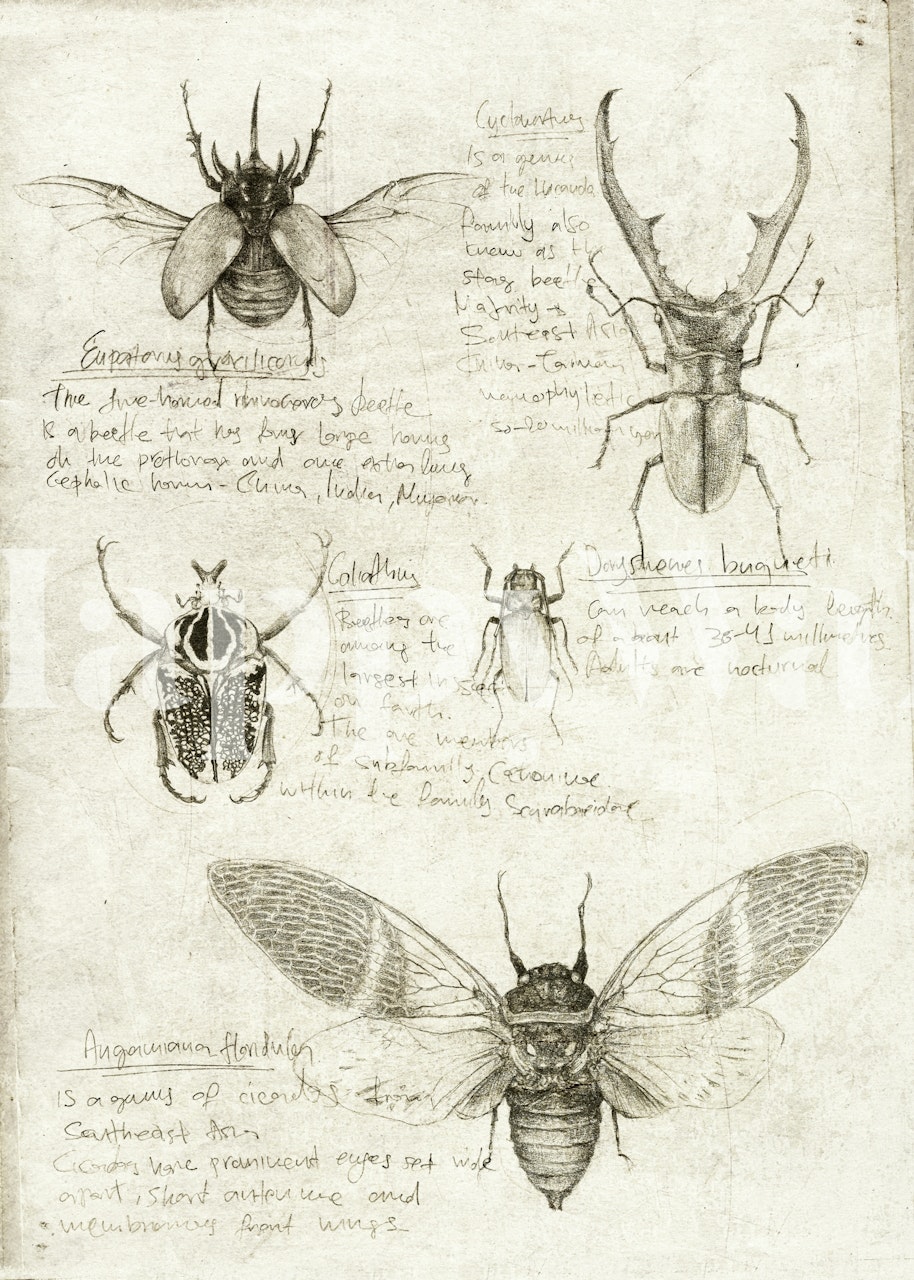 Eupatorus gracilicornis
The five-horned rhinoceros beetle
is a beetle that has four large horns
on the prothorax and one extra long
cephalic horn - China, India,
Cyclommatus
is a genus
of the
family also
known as the
stag beetle
Majority →
Southeast Asia
China - Taiwan
monophyletic
Goliathus
Beetles are
among the
largest insect
on Earth.
The are members
of subfamily Cetoniinae
within the family Scarabaeidae
Dorysthenes buqueti
Can reach a body length
of about 35-41 millimetres
Adults are nocturnal
Angamiana floridula
is a genus of cicadas from
Southeast Asia
Cicadas have prominent eyes set wide
apart, short antennae and
membranous front wings